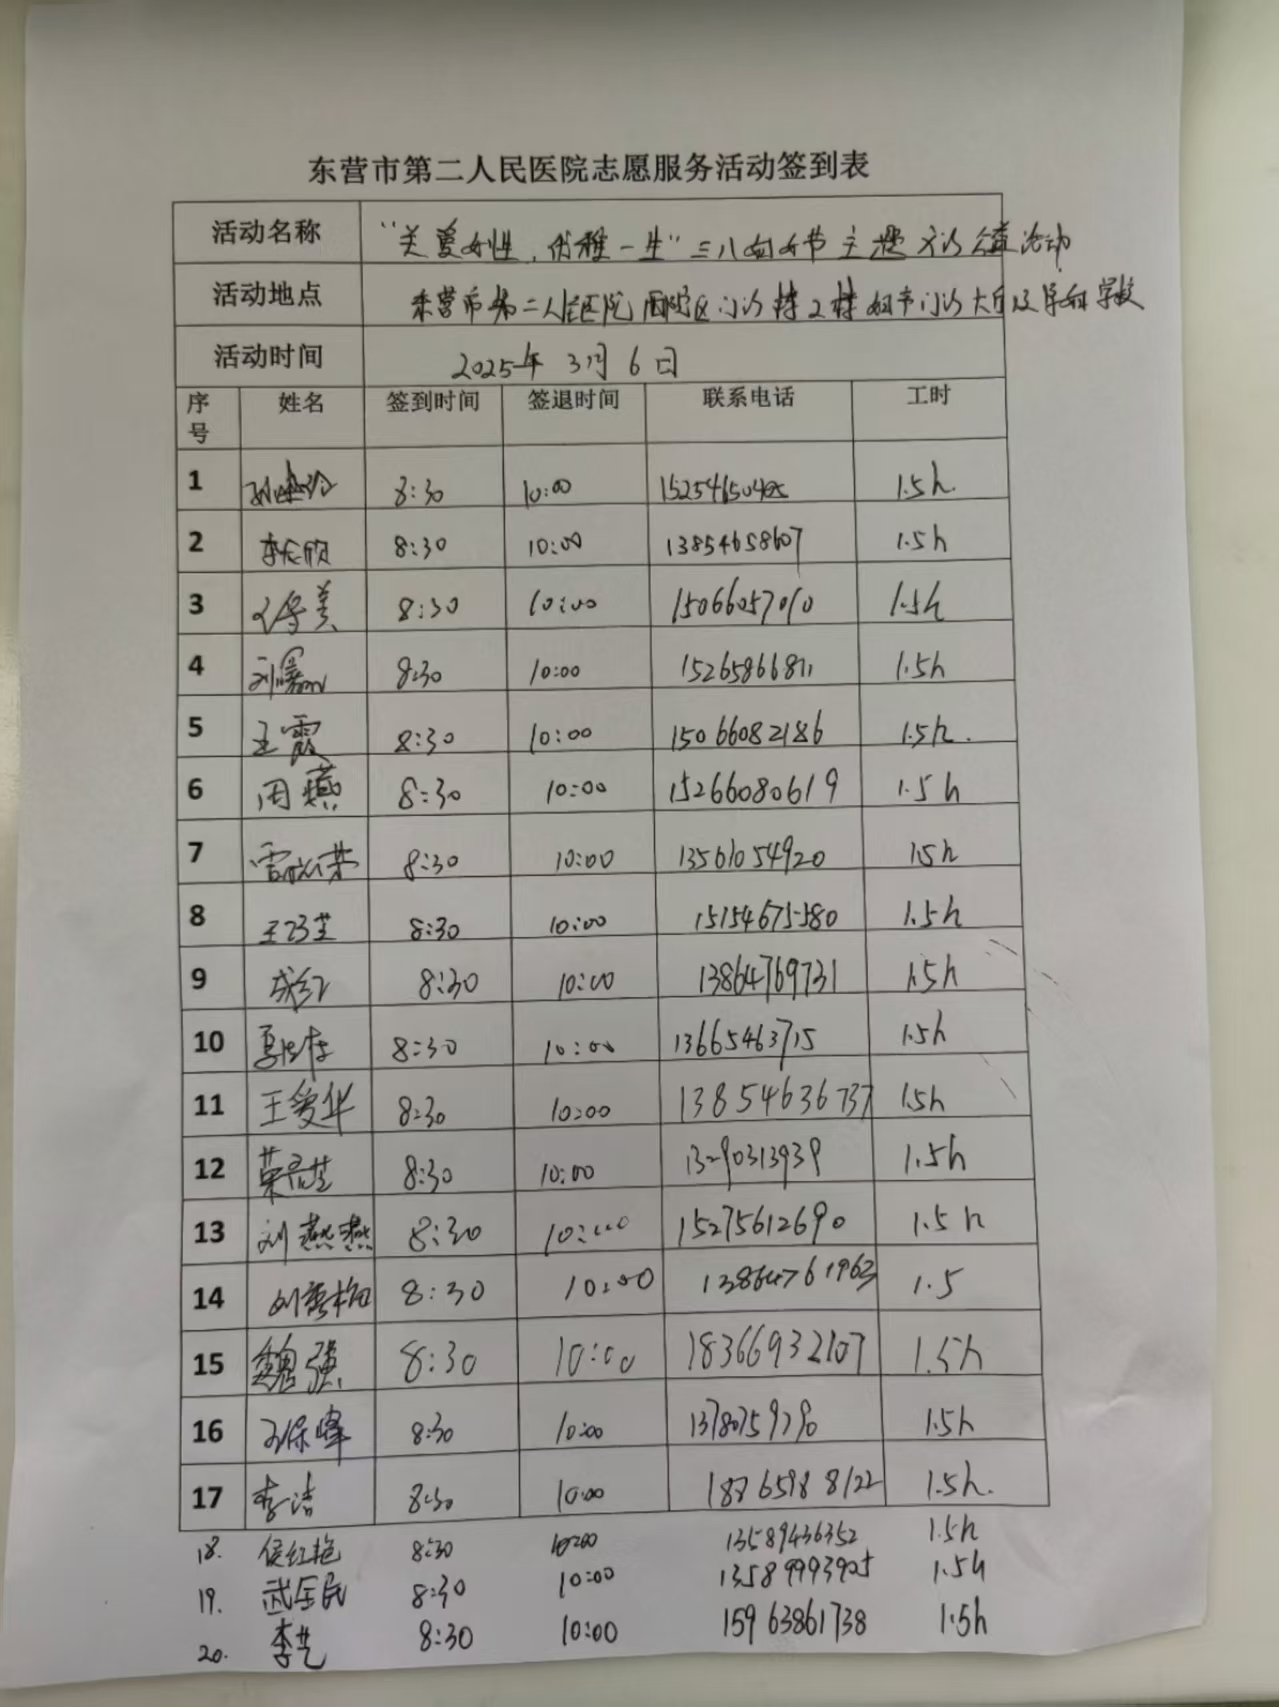 东营市第二人民医院志愿服务活动签到表
活动名称 “关爱女性，优雅一生”三八妇女节主题义诊公益活动
活动地点 东营市第二人民医院西院区门诊楼2楼妇产门诊大厅及孕妇学校
活动时间 2025年3月6日
序号 姓名 签到时间 签退时间 联系电话 工时
1 8:30 10:00 15254650405 1.5h.
2 8:30 10:00 13854658607 1.5h
3 8:30 10:00 15066057010 1.5h
4 刘 8:30 10:00 15265866811 1.5h
5 王霞 8:30 10:00 15066082186 1.5h.
6 周燕 8:30 10:00 15266080619 1.5h
7 8:30 10:00 13561054920 1.5h
8 王 8:30 10:00 15154675580 1.5h
9 成红 8:30 10:00 13864769731 1.5h
10 8:30 10:00 13665463715 1.5h
11 王爱华 8:30 10:00 13854636737 1.5h
12 8:30 10:00 13290313939 1.5h
13 刘燕燕 8:30 10:00 15275612690 1.5h
14 刘秀梅 8:30 10:00 13864761963 1.5
15 魏强 8:30 10:00 18366932107 1.5h
16 保峰 8:30 10:00 13780759790 1.5h
17 李洁 8:30 10:00 18865988122 1.5h.
18. 侯红艳 8:30 10:00 13589436352 1.5h
19. 武全民 8:30 10:00 13589993905 1.5h
20. 李艺 8:30 10:00 15963861738 1.5h